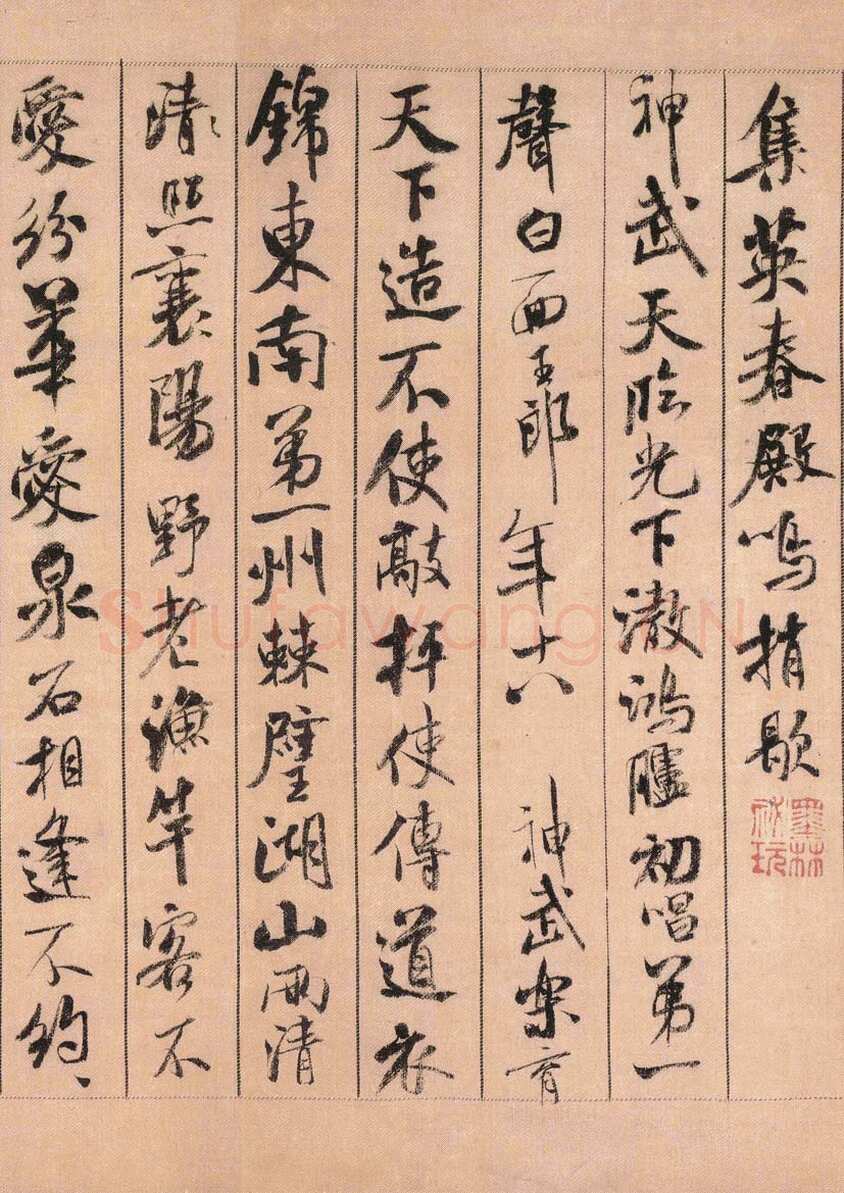 集英春殿鳴捎歇
神武天臨光下澈鴻臚初唱第一
聲白面王郎年十八 神武樂育
天下造不使敲枰使傳道衣
錦東南第一州棘璧湖山兩清
清照襄陽野老漁竿客不
愛紛華愛泉石相逢不約、
墨林秘玩
Shufawang.CN